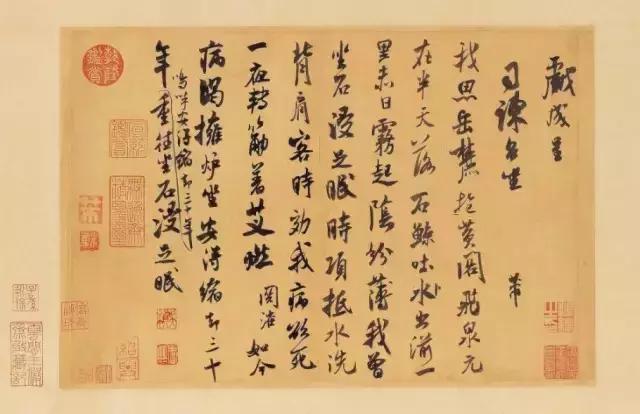 戲成呈
司諫台坐
芾
我思岳麓抱黃閣飛泉元
在半天落石鯨吐水出湔一
里赤日霧起陰紛薄我曾
坐石浸足眠時項抵水洗
背肩客時効我病欲死
一夜轉筋著艾燃 如今
病渴擁爐坐安得縮却三十
嗚呼安得縮却三十年
年重往坐石浸足眠